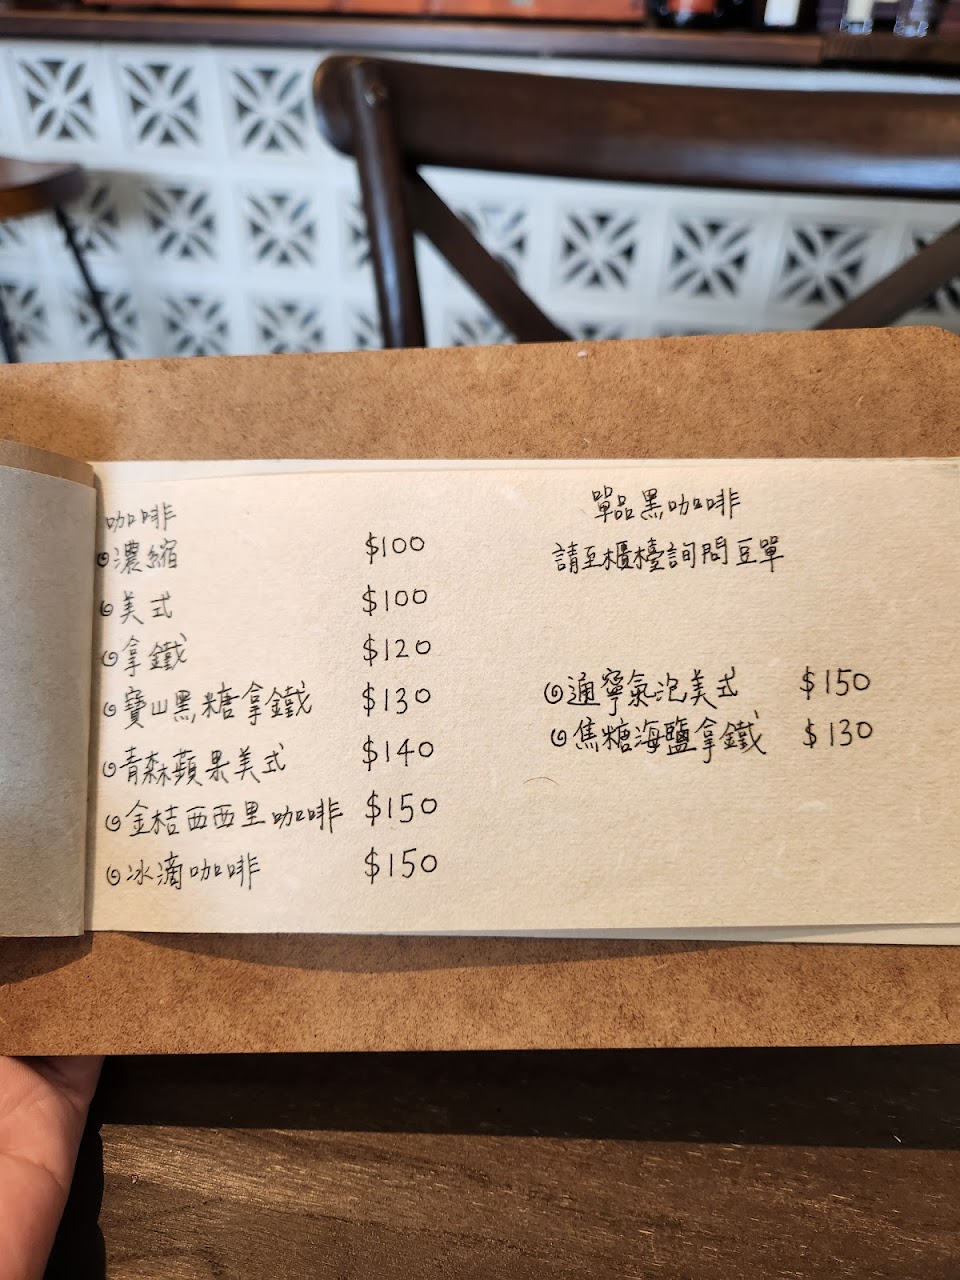 咖啡
濃縮 $100
美式 $100
拿鐵 $120
寶山黑糖拿鐵 $130
青森蘋果美式 $140
金桔西西里咖啡 $150
冰滴咖啡 $150
單品黑咖啡
請至櫃檯詢問豆單
通寧氣泡美式 $150
焦糖海鹽拿鐵 $130